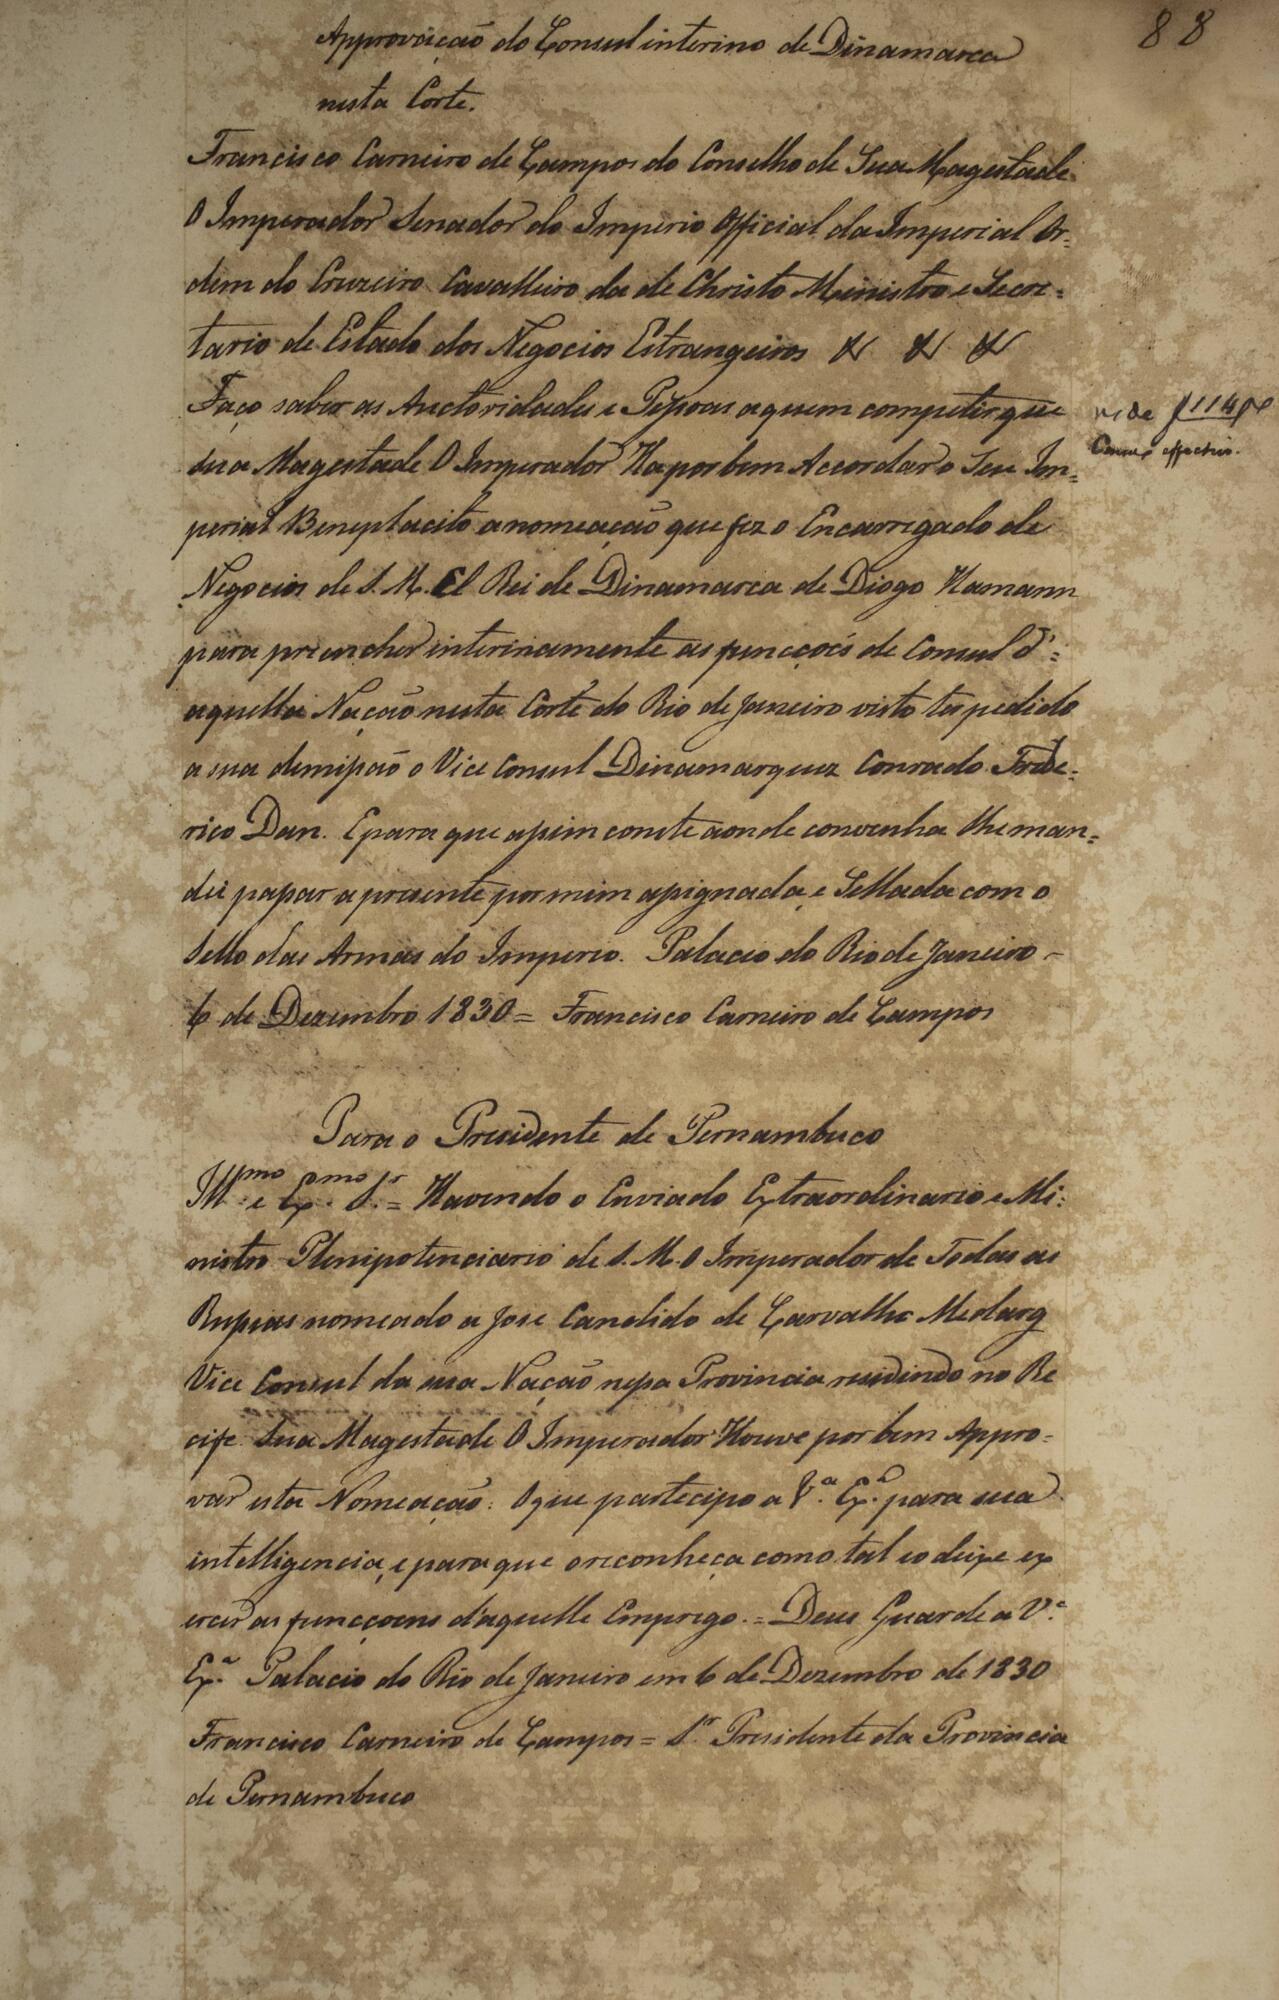 88
Approvação do Consul interino de Dinamarca
nesta Corte.
Francisco Carneiro de Campos do Conselho de Sua Magestade
O Imperador Senador do Imperio Official da Imperial Or=
dem do Cruzeiro Cavalleiro da de Christo Ministro e Secre=
tario de Estado dos Negocios Estrangeiros & & &
Faço saber as Auctoridades e Pessoas a quem competir que
Sua Magestade O Imperador Ha por bem Accordar o Seu Im=
perial Beneplacito a nomeação que fez o Encarregado de
Negocios de S. M. El Rei de Dinamarca de Diogo Hamann
para preencher interinamente as funcções de Consul d'=
aquella Nação nesta Corte do Rio de Janeiro visto ter pedido
a sua demissão o Vice Consul Dinamarquez Conrado Frede=
rico Dan. E para que assim conste aonde convenha lhe man=
dei passar a presente por mim assignada, e Sellada com o
Sello das Armas do Imperio. Palacio do Rio de Janeiro
6 de Dezembro 1830 = Francisco Carneiro de Campos
vide f 114
Consul effectivo.
Para o Presidente de Pernambuco
Illmo. e Exmo. Sr. = Havendo o Enviado Extraordinario e Mi=
nistro Plenipotenciario de S. M. O Imperador de Todas as
Russias nomeado a Jose Candido de Carvalho
Vice Consul da sua Nação nessa Provincia residindo no Re
cife Sua Magestade O Imperador Houve por bem Appro=
var esta Nomeação: O que partecipo a V.a Ex.a para sua
intelligencia, e para que o reconheça como tal e o deixe ex
ercer as funcçoens d'aquelle Emprego. = Deus Guarde a V.a
Ex.a Palacio do Rio de Janeiro em 6 de Dezembro de 1830
Francisco Carneiro de Campos = Sr. Presidente da Provincia
de Pernambuco